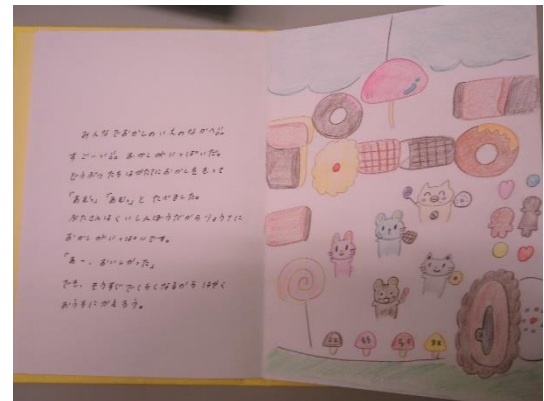 みんなでおかしのいえのなかへ。
すごーい。おかしがいっぱいだ。
どうぶつたちはかたてにおかしをもって
「あむっ」「あむっ」とたべました。
ぶたさんはくいしんぼうだからりょうてに
おかしがいっぱいです。
「あー、おいしかった。」
でも、もうすぐくらくなるから はやく
おうちにかえろう。